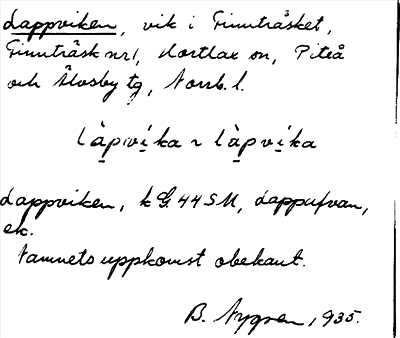 Lappviken, vik i Finnträsket,
Finnträsk nr 1, Hortlax sn, Piteå
och Älvsby tg, Norrb. l.
làpvíka ~ làpvíka
Lappviken, k G. 44 SM, Lappufvan,
ek.
Namnets uppkomst obekant.
B. Nygren, 1935.